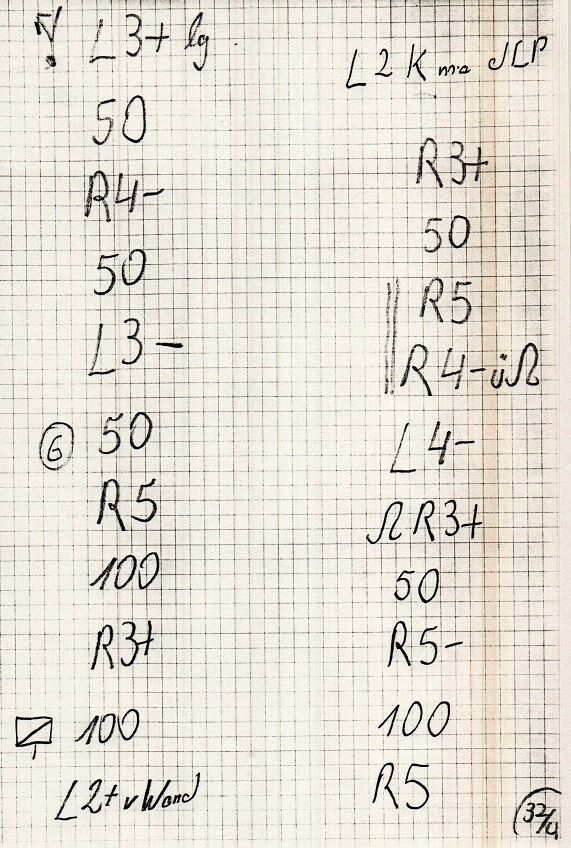 L3+ lg
50
R4-
50
L3-
G 50
R5
100
R3+
100
L2+ v Wand
L2K
R3+
50
R5
R4- ü Ω
L4-
Ω R3+
50
R5-
100
R5
32/4